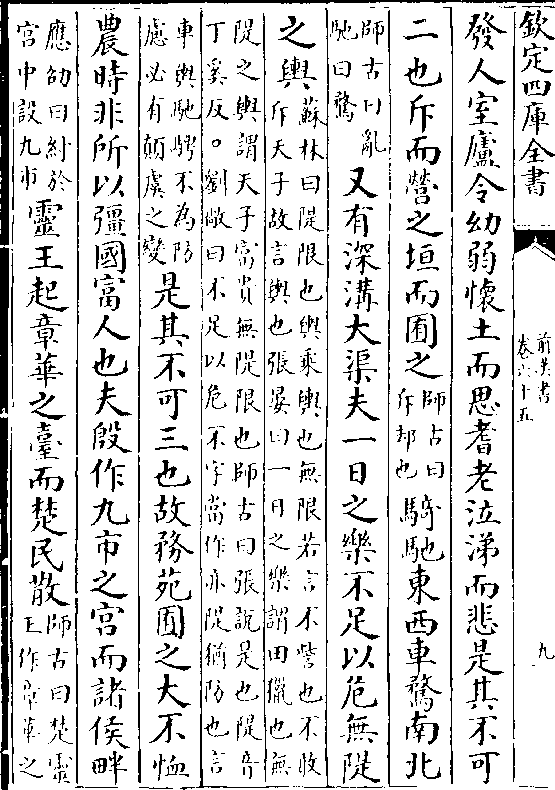 欽定四庫全書
前漢書
卷六十五
九
發人室廬令幼弱懷土而思耆老泣涕而悲是其不可
二也斥而營之垣而囿之
師古曰
斥却也
騎馳東西車騖南北
師古曰亂
馳曰騖
又有深溝大渠夫一日之樂不足以危無隄
之輿
蘇林曰隄限也輿乘輿也無限若言不訾也不敢
斥天子故言輿也張晏曰一日之樂謂田獵也無
隄之輿謂天子富貴無隄限也師古曰張說是也隄音
丁奚反。劉敞曰不足以危不字當作亦隄猶防也言
車輿馳騁不為防
慮必有顛虞之變
是其不可三也故務苑囿之大不恤
農時非所以彊國富人也夫殷作九市之宮而諸侯畔
應劭曰紂於
宮中設九市
靈王起章華之臺而楚民散
師古曰楚靈
王作章華之